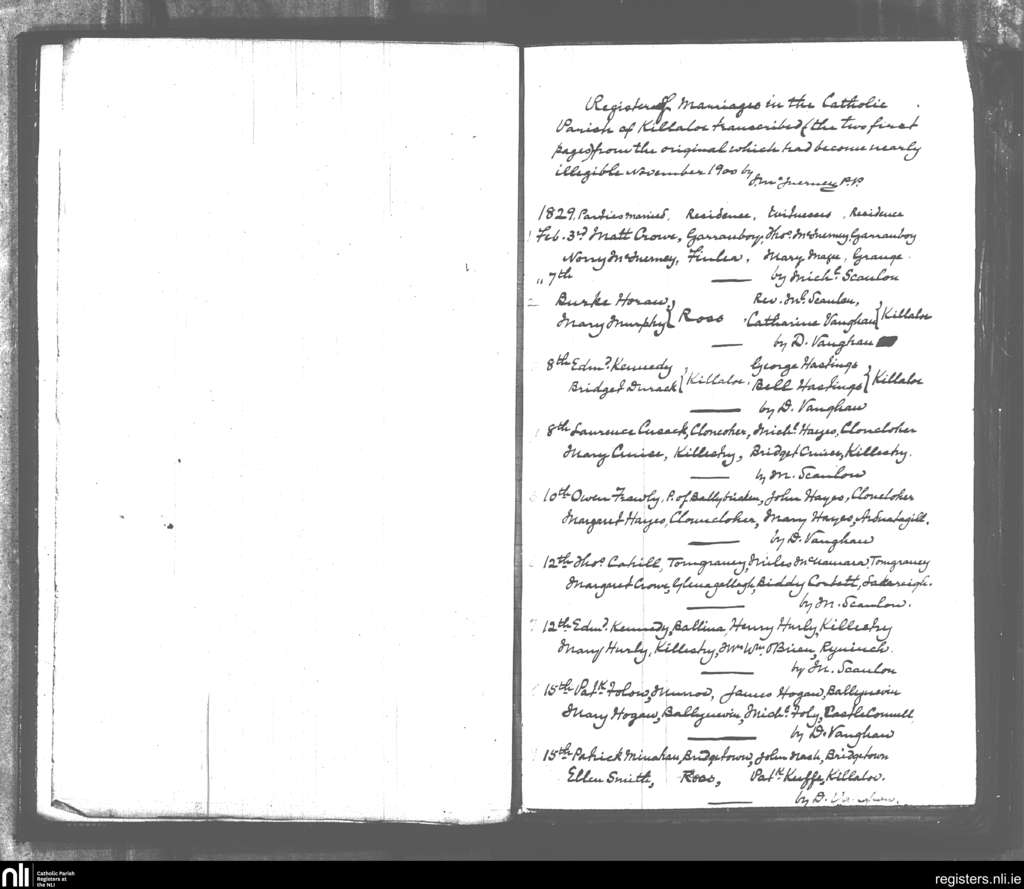 Register of Marriages in the Catholic
Parish of Killaloe transcribed (the two first
pages) from the original which had become nearly
illegible November 1900 by
J. McInerney P.P.
1829. Parties married. Residence. Witnesses. Residence
1 Feb. 3rd Matt Crowe, Garraunboy, Thos. McInerney, Garraunboy
Norry McInerney, Finlea. Mary Magee, Grange.
„ 7th by Michl. Scanlon
2 Burke Horan, Rev. Ml. Scanlon,
Mary Murphy } Ross. Catharine Vaughan } Killaloe
by D. Vaughan
8th Edmd. Kennedy, George Hastings,
Bridget Durack } Killaloe. Bell Hastings } Killaloe
by D. Vaughan
8th Laurence Cusack, Cloncoher, Michl. Hayes, Cloncloher
Mary Cruise, Killestry, Bridget Cruise, Killestry.
by M. Scanlon
10th Owen Frawly, P. of John Hayes, Cloncloher
Margaret Hayes, Clonecloher, Mary Hayes,
by D. Vaughan
12th Thos. Cahill, Tomgraney, Miles McNamara, Tomgraney
Margaret Crowe, Glenagallagh, Biddy Corbett,
by M. Scanlon.
12th Edmd. Kennedy, Ballina, Henry Hurly, Killestry
Mary Hurly, Killestry, Mrs Wm. O'Brien, Ryninch.
by M. Scanlon
15th Patk. Munroe, James Hogan, Ballynevin
Mary Hogan, Ballynevin, Michl. Foly, CastleConnell.
by D. Vaughan
15th Patrick Minahan, Bridgetown, John Nash, Bridgetown
Ellen Smith, Ross, Patk. Keeffe, Killaloe.
by D. Vaughan.
nli Catholic Parish
Registers at
the NLI
registers.nli.ie